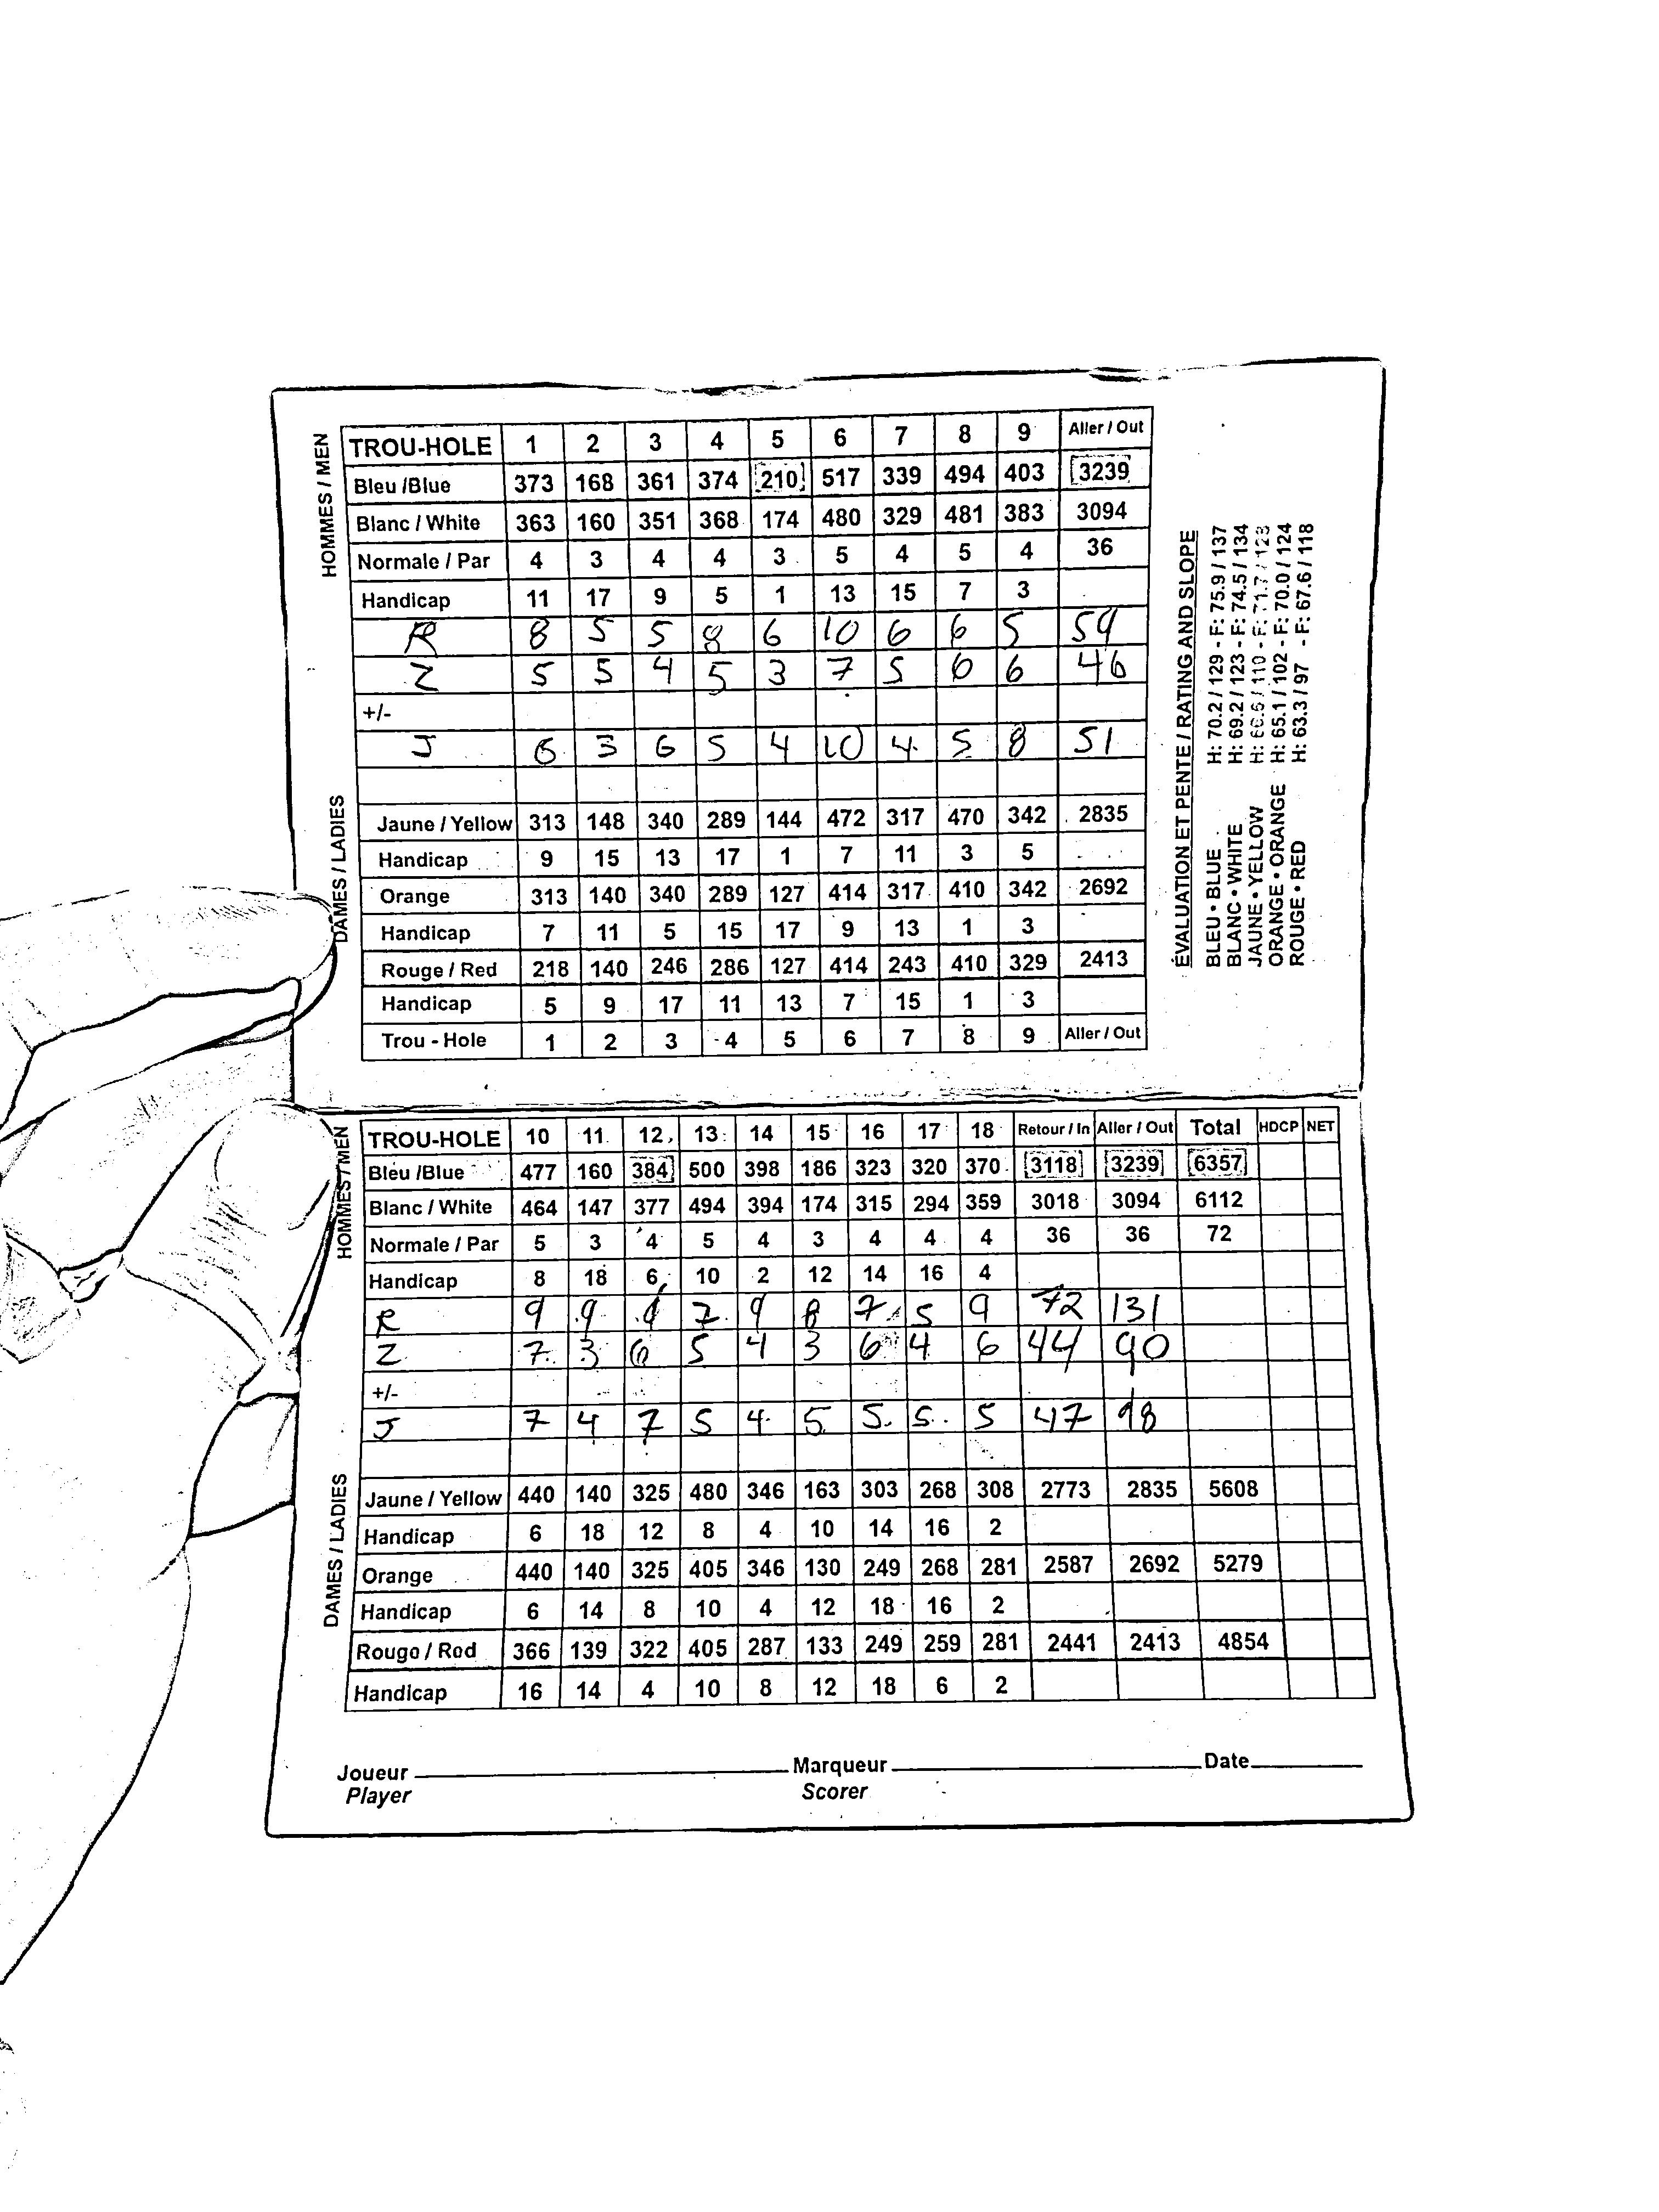 HOMMES / MEN
TROU-HOLE 1 2 3 4 5 6 7 8 9 Aller / Out
Bleu /Blue 373 168 361 374 210 517 339 494 403 3239
Blanc / White 363 160 351 368 174 480 329 481 383 3094
Normale / Par 4 3 4 4 3 5 4 5 4 36
Handicap 11 17 9 5 1 13 15 7 3
R 8 5 5 8 6 10 6 6 5 59
Z 5 5 4 5 3 7 5 6 6 46
+/-
J 6 3 6 5 4 10 4 5 8 51
DAMES / LADIES
Jaune / Yellow 313 148 340 289 144 472 317 470 342 2835
Handicap 9 15 13 17 1 7 11 3 5
Orange 313 140 340 289 127 414 317 410 342 2692
Handicap 7 11 5 15 17 9 13 1 3
Rouge / Red 218 140 246 286 127 414 243 410 329 2413
Handicap 5 9 17 11 13 7 15 1 3
Trou - Hole 1 2 3 4 5 6 7 8 9 Aller / Out
ÉVALUATION ET PENTE / RATING AND SLOPE
BLEU • BLUE H: 70.2 / 129 - F: 75.9 / 137
BLANC • WHITE H: 69.2 / 123 - F: 74.5 / 134
JAUNE • YELLOW H: 66.5 / 110 - F: 71.7 / 128
ORANGE • ORANGE H: 65.1 / 102 - F: 70.0 / 124
ROUGE • RED H: 63.3 / 97 - F: 67.6 / 118
HOMMES / MEN
TROU-HOLE 10 11 12 13 14 15 16 17 18 Retour / In Aller / Out Total HDCP NET
Bleu /Blue 477 160 384 500 398 186 323 320 370 3118 3239 6357
Blanc / White 464 147 377 494 394 174 315 294 359 3018 3094 6112
Normale / Par 5 3 4 5 4 3 4 4 4 36 36 72
Handicap 8 18 6 10 2 12 14 16 4
R 9 9 9 7 9 8 7 5 9 72 131
Z 7 3 6 5 4 3 6 4 6 44 90
+/-
J 7 4 7 5 4 5 5 5 5 47 98
DAMES / LADIES
Jaune / Yellow 440 140 325 480 346 163 303 268 308 2773 2835 5608
Handicap 6 18 12 8 4 10 14 16 2
Orange 440 140 325 405 346 130 249 268 281 2587 2692 5279
Handicap 6 14 8 10 4 12 18 16 2
Rouge / Red 366 139 322 405 287 133 249 259 281 2441 2413 4854
Handicap 16 14 4 10 8 12 18 6 2
Joueur Marqueur Date
Player Scorer